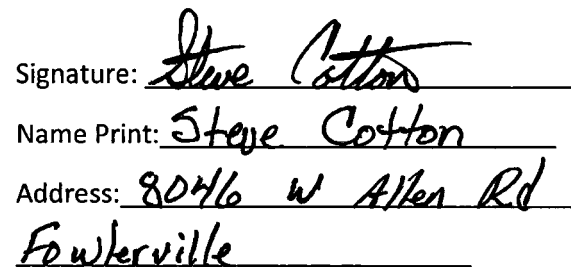 Signature: Steve Cotton
Name Print: Steve Cotton
Address: 8046 W Allen Rd
Fowlerville